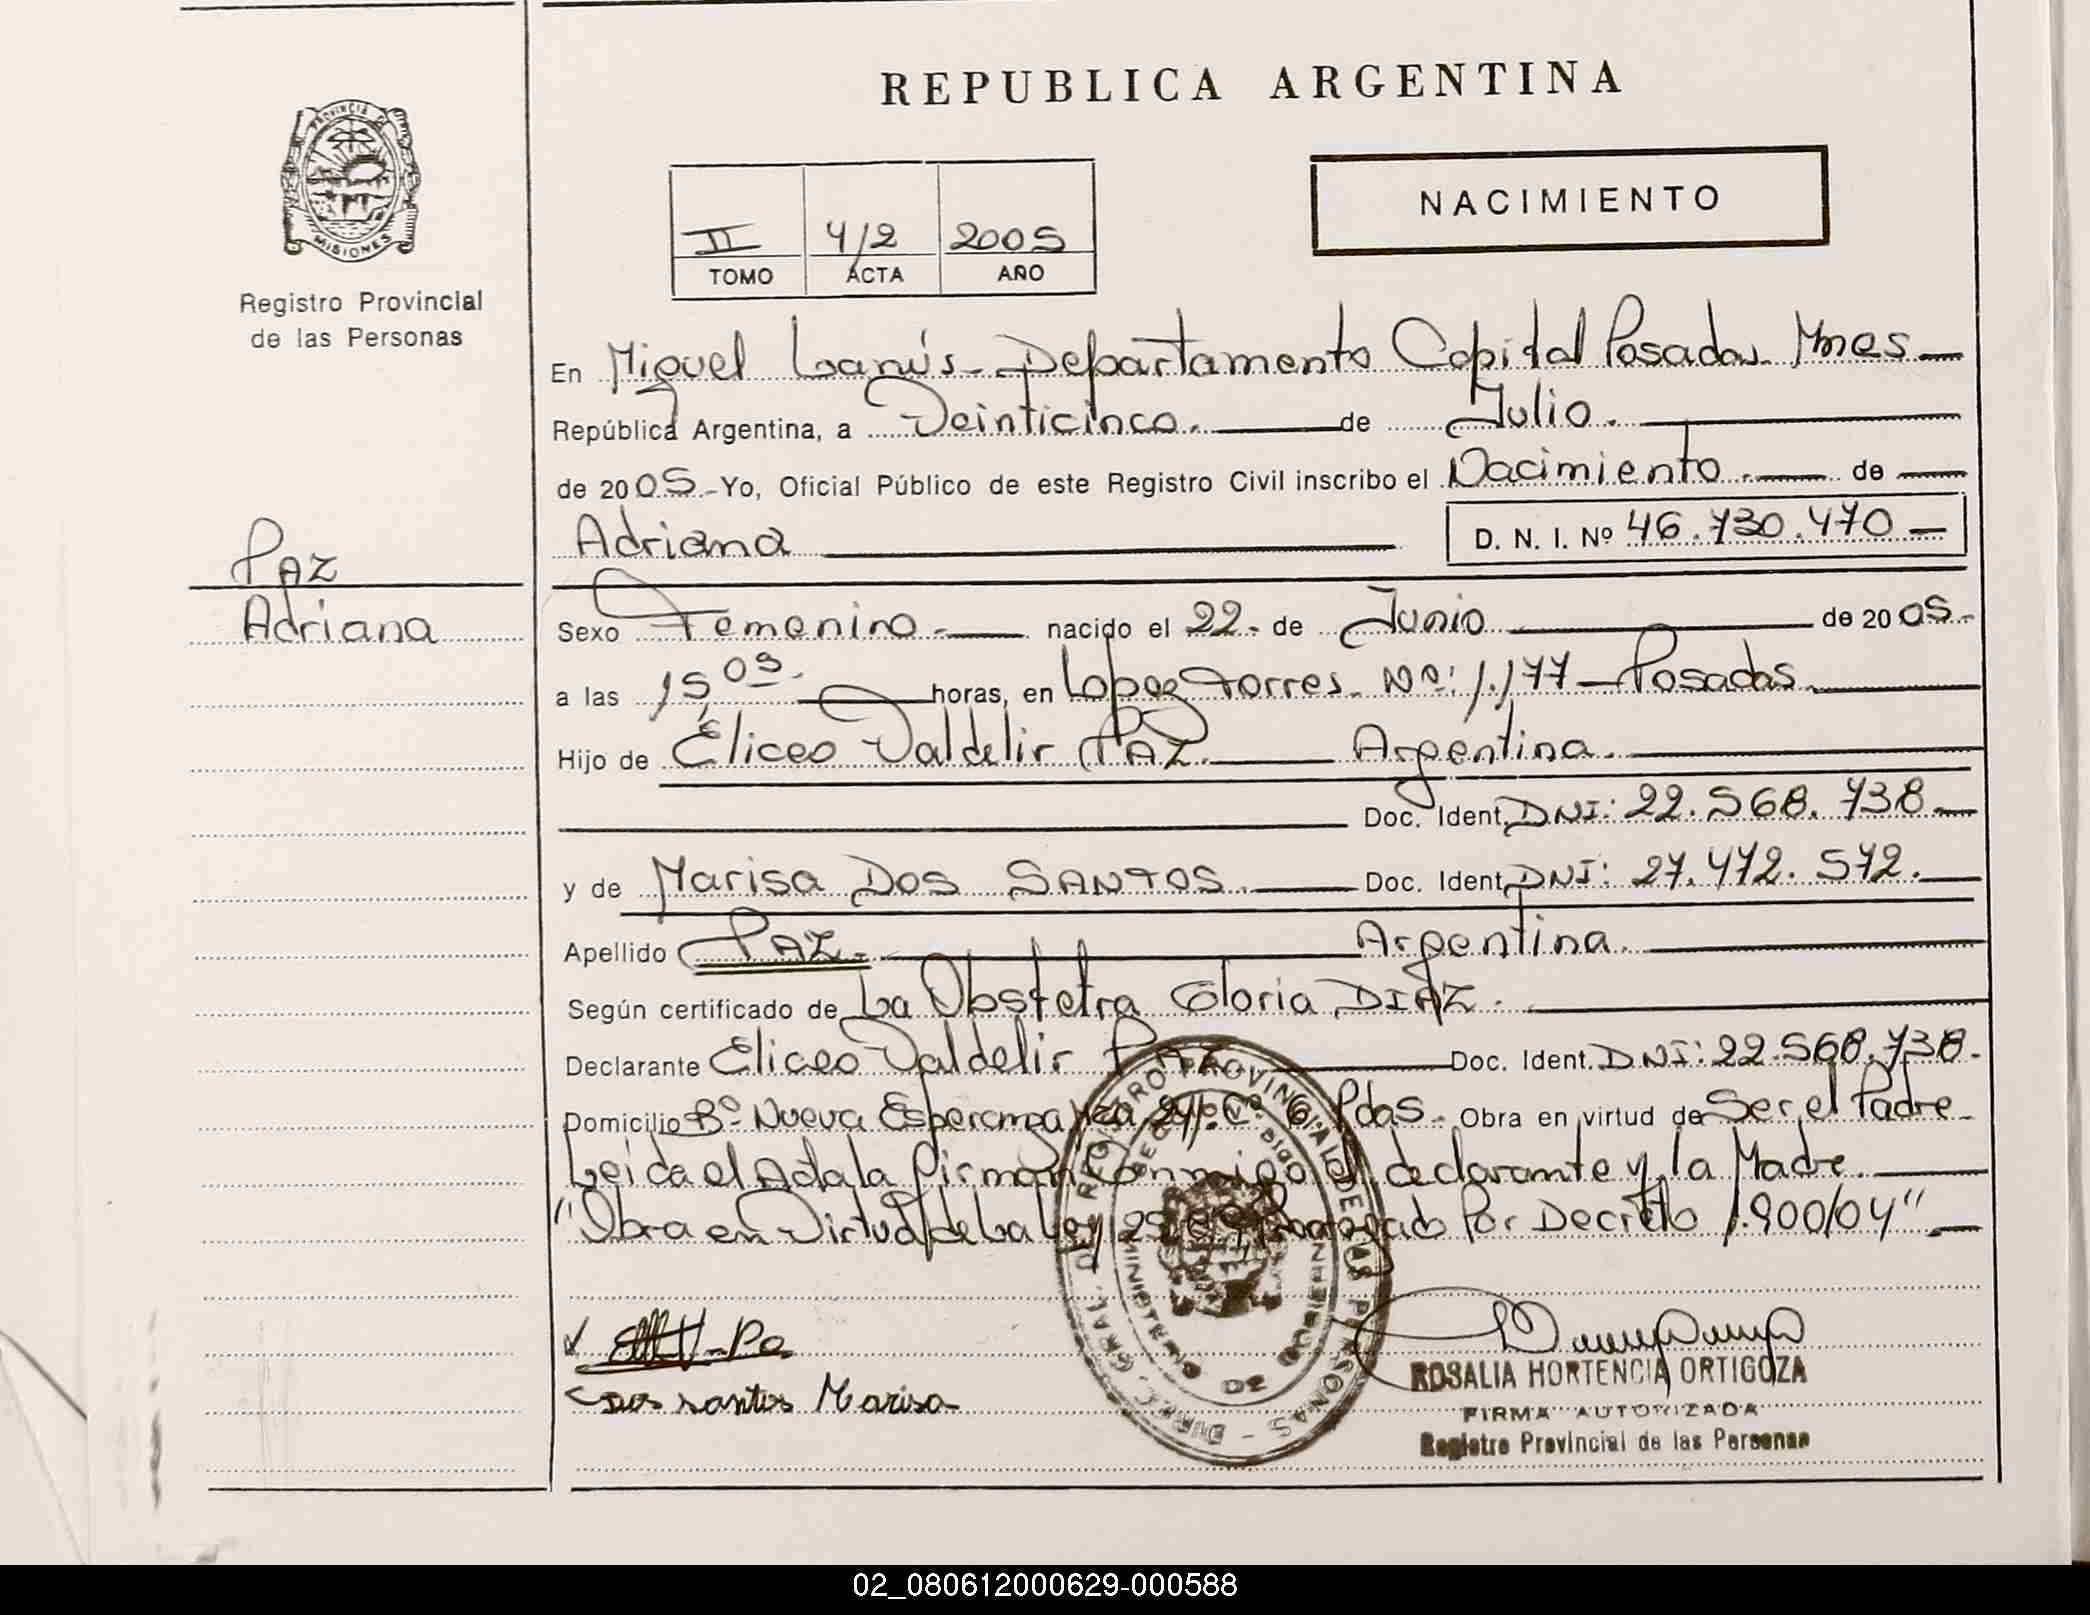 REPUBLICA ARGENTINA
PROVINCIA DE MISIONES
Registro Provincial
de las Personas
NACIMIENTO
II 4/2 2005
TOMO ACTA AÑO
En Miguel Lanús - Departamento Capital Posadas Mnes
República Argentina, a Veinticinco. de Julio.
de 2005.- Yo, Oficial Público de este Registro Civil inscribo el Nacimiento.- de
Adriana D. N. I. Nº 46.730.470
PAZ
Adriana
Sexo Femenino.- nacido el 22.- de Junio de 2005.-
a las 15,05.- horas, en Lopez Torres Nº: 1.177 - Posadas.
Hijo de Eliceo Valdelir PAZ. Argentina.
Doc. Ident. DNI: 22.568.738.
y de Marisa DOS SANTOS. Doc. Ident. DNI: 27.472.572.
Apellido PAZ.- Argentina.
Según certificado de La Obstetra Gloria DIAZ.
Declarante Eliceo Valdelir PAZ. Doc. Ident. DNI: 22.568.738.
Domicilio Bº Nueva Esperanza Mza Cº 6 Pdas.- Obra en virtud de Ser el Padre
Leida el Acta la firman Conmigo el declarante y la Madre
"Obra en Virtud de La Ley Prorrogado Por Decreto 1.900/04"
Dos santos Marisa
ROSALIA HORTENCIA ORTIGOZA
FIRMA AUTORIZADA
Registro Provincial de las Personas
DIREC. GRAL. DEL REGISTRO PROVINCIAL DE LAS PERSONAS
02_080612000629-000588